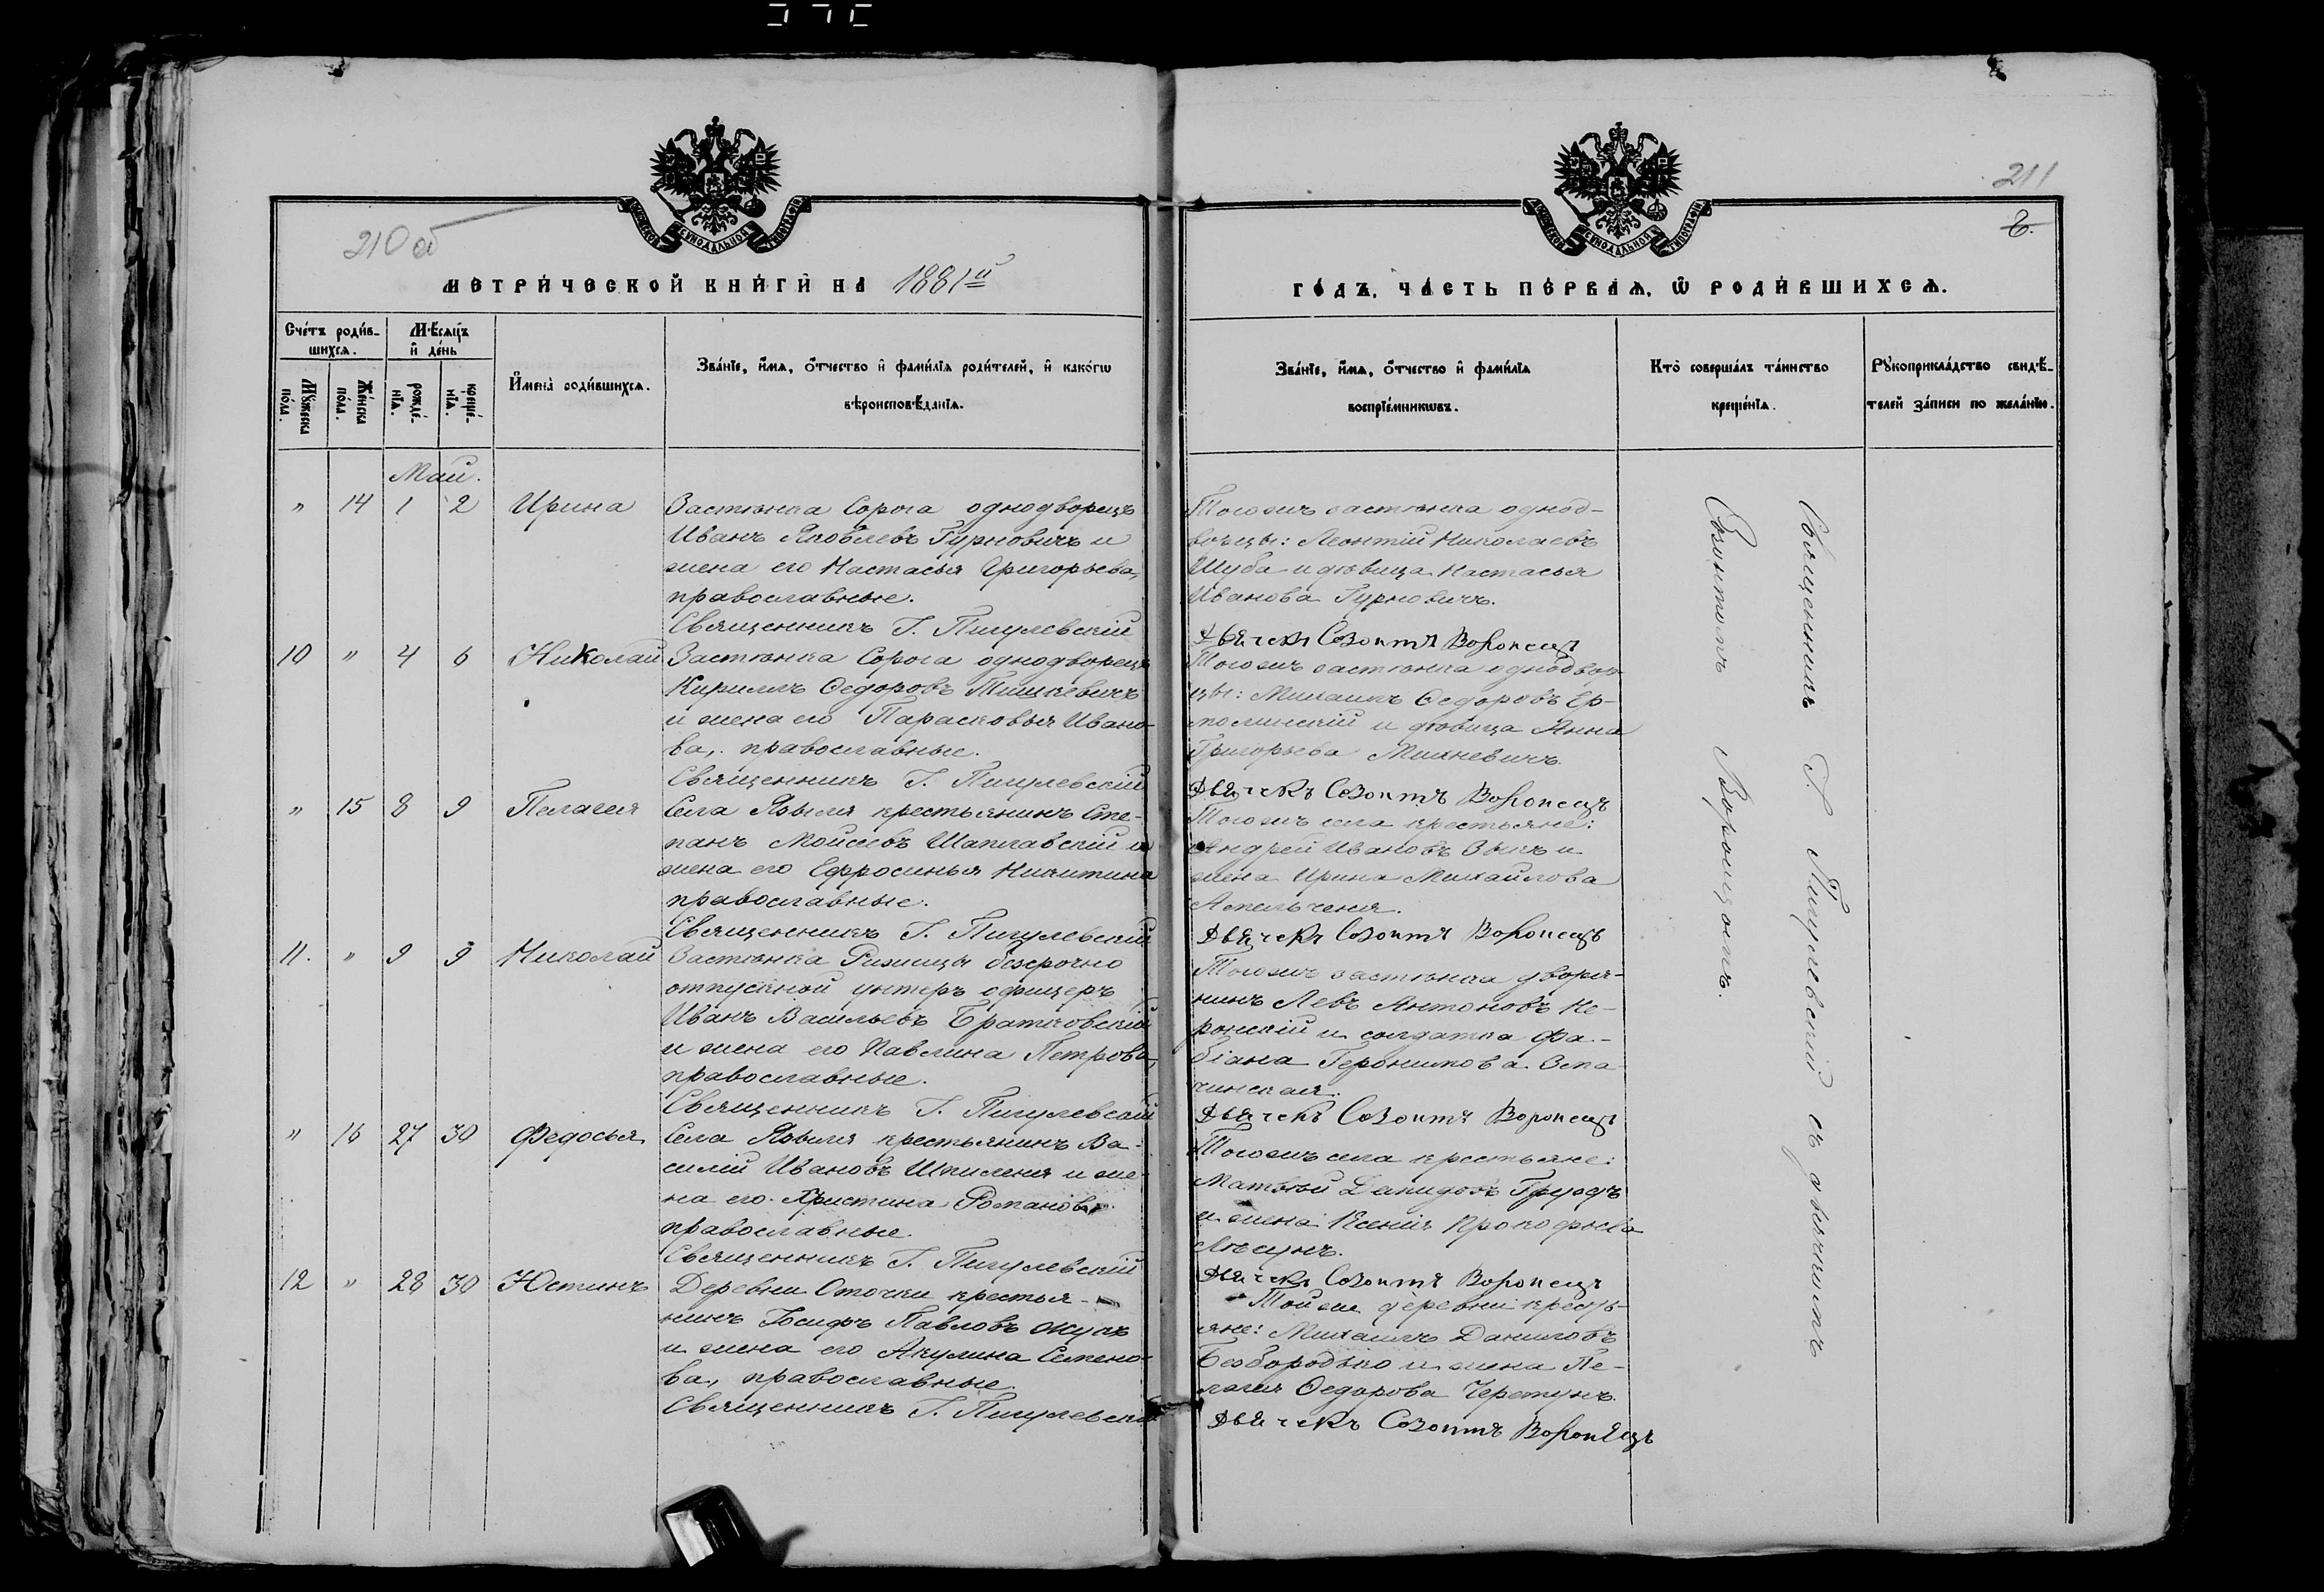 211
210 об
6.
МОСКОВСКОЙ СѴНОДАЛЬНОЙ ТИПОГРАФІИ
МОСКОВСКОЙ СѴНОДАЛЬНОЙ ТИПОГРАФІИ
МЕТРИ́ЧЕСКОЙ КНИ́ГИ НА 1881й
ГО́ДЪ, ЧА́СТЬ ПЕ́РВАѦ, Ѿ РОДИ́ВШИХСѦ.
Сче́тъ роди́в-
шихсѧ.
Мѣ́сѧцъ
и҆ де́нь
Мꙋ́жеска
по́ла.
Же́нска
по́ла.
рожде́-
нїѧ.
креще́-
нїѧ.
И҆мена̀ роди́вшихсѧ.
Зва́нїе, и҆́мѧ, ѻ҆́тчество и҆ фами́лїѧ роди́телей, и҆ како́гѡ
вѣроисповѣ́данїѧ.
Зва́нїе, и҆́мѧ, ѻ҆́тчество и҆ фами́лїѧ
воспрїе́мникѡвъ.
Кто̀ соверша́лъ та́инство
креще́нїѧ.
Рꙋкоприкла́дство свидѣ́-
телей за́писи по жела́нїю.
Май.
" 14 1 2 Ирина
Застѣнка Сорога однодворецъ
Иванъ Яковлевъ Гурновичъ и
жена его Настасья Григорьева,
православные.
Священникъ Г. Пигулевскій
Тогожъ застѣнка однод-
ворцы: Леонтій Николаевъ
Шуба и дѣвица Настасья
Иванова Гурновичъ.
Дьячекъ Созонтъ Воронецъ
10 " 4 6 Николай
Застѣнка Сорога однодворецъ
Кириллъ Ѳедоровъ Тишкевичъ
и жена его Парасковья Ивано-
ва, православные.
Священникъ Г. Пигулевскій
Тогожъ застѣнка однодвор-
цы: Михаилъ Ѳедоровъ Ер-
молинскій и дѣвица Анна
Григорьева Михневичъ.
Дьячекъ Созонтъ Воронецъ
" 15 8 9 Пелагея
Села Языля крестьянинъ Сте-
панъ Мойсеевъ Шаплавскій и
жена его Ефросинья Никитина
православные.
Священникъ Г. Пигулевскій
Тогожъ села крестьяне:
Андрей Ивановъ Зыкъ и
жена Ирина Михайлова
Амельченя.
Дьячекъ Созонтъ Воронецъ
11. " 9 9 Николай
Застѣнка безсрочно
отпускной унтеръ офицеръ
Иванъ Васильевъ Братковскій
и жена его Павлина Петрова,
православные.
Священникъ Г. Пигулевскій
Тогожъ застѣнка дворя-
нинъ Левъ Антоновъ Не-
ронскій и солдатка Фа-
біана Геронимова Оспа-
чинская.
Дьячекъ Созонтъ Воронецъ
" 16 27 30 Федосья
Села Языля крестьянинъ Ва-
силій Ивановъ Шпиленя и же-
на его Христина Романова
православные.
Священникъ Г. Пигулевскій
Тогожъ села крестьяне:
Матвѣй Давидовъ Груздъ
и жена Ксенія Прокофьева
Дьячекъ Созонтъ Воронецъ
12 " 28 30 Юстинъ
Деревни Оточки крестья-
нинъ Іосифъ Павловъ Жукъ
и жена его Акулина Семено-
ва, православные.
Священникъ Г. Пигулевскій
Той же деревни кресть-
яне: Михаилъ Даниловъ
Безбородько и жена Пе-
лагея Ѳедорова Черетунъ.
Дьячекъ Созонтъ Воронецъ
Священникъ Г. Пигулевскій съ дьячкомъ
Созонтомъ Воронцомъ.